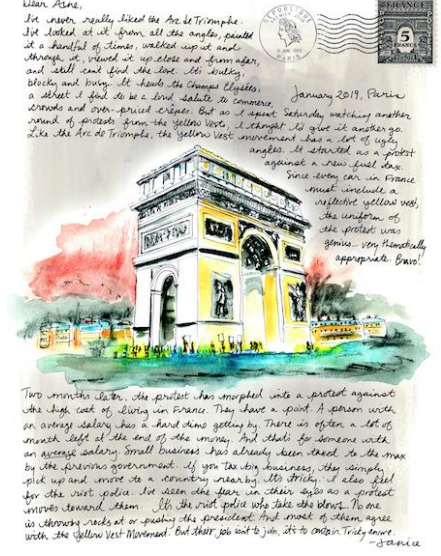 Dear Áine,
I've never really liked the Arc de Triomphe.
I've looked at it from all the angles, painted
it a handful of times, walked up it and
through it, viewed it up close and from afar,
and still can't find the love. It's bulky,
blocky and busy. It heads the Champs Elysées,
a street I find to be a loud salute to commerce,
January 2019, Paris
crowds and over-priced crêpes. But as I spent Saturday watching another
round of protests from the Yellow Vests, I thought I'd give it another go.
Like the Arc de Triomphe, the Yellow Vest movement has a lot of ugly
angles. It started as a protest
against a new fuel tax.
Since every car in France
must include a
reflective yellow vest,
the uniform of
the protest was
genius... very thematically
appropriate. Bravo!
REPUBLIQUE
PARIS
FRANCE
5
FRANCS
Two months later, the protest has morphed into a protest against
the high cost of living in France. They have a point. A person with
an average salary has a hard time getting by. There is often a lot of
month left at the end of the money. And that's for someone with
an average salary. Small business has already been taxed to the max
by the previous government. If you tax big business, they simply
pick up and move to a country nearby. It's tricky. I also feel
for the riot police. I've seen the fear in their eyes as a protest
moves toward them. It's the riot police who take the blows. No one
is throwing rocks at or pushing the president. And most of them agree
with the Yellow Vest Movement. But their job isn't to join, it's to contain. Tricky encore.
-Janice